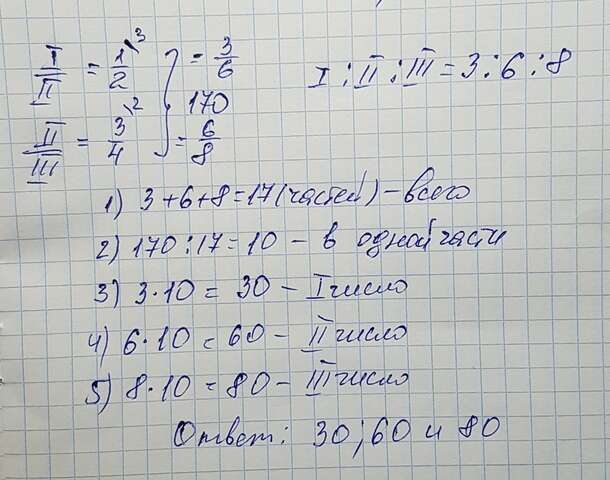 I/II = 1/2 \3 = 3/6
170
II/III = 3/4 \2 = 6/8
I : II : III = 3 : 6 : 8
1) 3+6+8=17(частей) – всего
2) 170:17=10 – в одной части
3) 3·10 = 30 – I число
4) 6·10 = 60 – II число
5) 8·10 = 80 – III число
Ответ: 30; 60 и 80